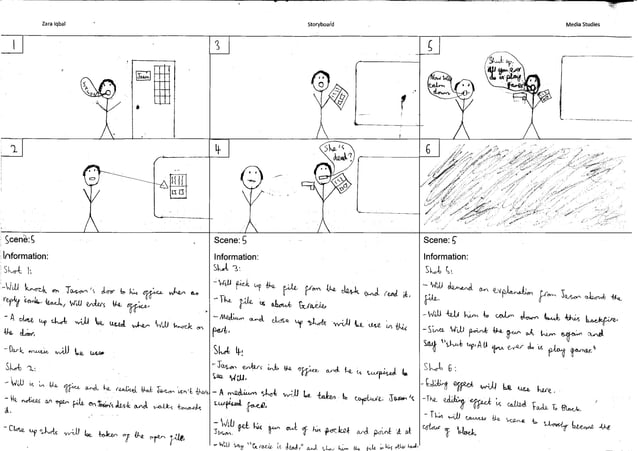 Zara Iqbal
Storyboard
Media Studies
1
Jason
3
5
Now Will
calm
down.
Shut up.
All you ever
do is play
games
2
4
She is
dead?
6
Scene:5
Information:
Shot 1:
-Will knock on Jason's door to his office when no
reply came back, Will enters the office.
-A close up shot will be used when Will knock on
the door.
-Dark music will be use
Shot 2:
-Will is in the office and he realised that Jason isn't there
-He notices an open file on Jason's desk and walks towards
it.
-Close up shots will be taken of the open file
Scene:5
Information:
Shot 3:
-Will pick up the file from the desk and read it.
-The file is about Gracie
-Medium and close up shots will be use in this
part.
Shot 4:
-Jason enters into the office and he is surpised to
see Will.
-A medium shot will be taken to capture Jason's
surpised face.
-Will get his gun out of his pocket and point it at
Jason.
-Will say "Gracie is dead," and show him the file in his other hand.
Scene:5
Information:
Shot 5:
-Will demand an explanation from Jason about the
file.
-Will tell him to calm down but this backfire.
-Since Will point the gun at him again and
say "shut up. All you ever do is play games"
Shot 6:
-Editing effect will be use here.
-The editing effect is called Fade To Black.
-This will cause the scene to slowly become the
colour of black.